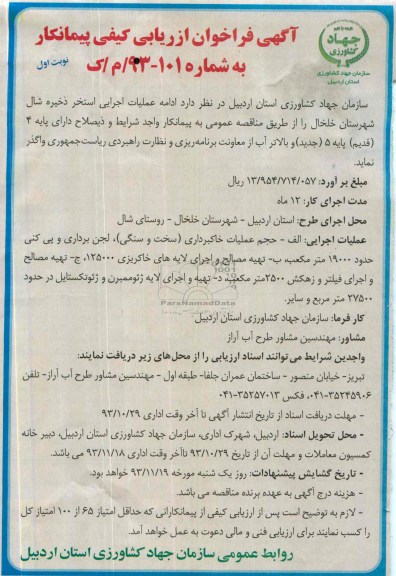 همه با هم
جهاد
کشاورزی
سازمان جهاد کشاورزی
استان اردبیل
آگهی فراخوان ارزیابی کیفی پیمانکار
به شماره ۱۰۱-۹۳/م/ک
نوبت اول
سازمان جهاد کشاورزی استان اردبیل در نظر دارد ادامه عملیات اجرایی استخر ذخیره شال
شهرستان خلخال را از طریق مناقصه عمومی به پیمانکار واجد شرایط و ذیصلاح دارای پایه ۴
(قدیم) پایه ۵ (جدید)و بالاتر آب از معاونت برنامه‌ریزی و نظارت راهبردی ریاست‌جمهوری واگذار
نماید.
مبلغ برآورد: ۱۳/۹۵۴/۷۱۴/۰۵۷ ریال
مدت اجرای کار: ۱۲ ماه
محل اجرای طرح: استان اردبیل - شهرستان خلخال - روستای شال
عملیات اجرایی: الف - حجم عملیات خاکبرداری (سخت و سنگی)، لجن برداری و پی کنی
حدود ۱۹۰۰۰ متر مکعب، ب- تهیه مصالح و اجرای لایه های خاکریزی ۱۲۵۰۰۰، ج- تهیه مصالح
و اجرای فیلتر و زهکش ۲۵۰۰متر مکعب، د- تهیه و اجرای لایه ژئوممبرن و ژئوتکستایل در حدود
۲۷۵۰۰ متر مربع و سایر.
ParsNamadData
کار فرما: سازمان جهاد کشاورزی استان اردبیل
مشاور: مهندسین مشاور طرح آب آراز
واجدین شرایط می‌توانند اسناد ارزیابی را از محل‌های زیر دریافت نمایند:
تبریز- خیابان منصور - ساختمان عمران جلفا- طبقه اول - مهندسین مشاور طرح آب آراز- تلفن
۰۴۱-۳۵۲۴۵۹۰۶، فکس ۰۴۱-۳۵۲۵۷۰۱۳
- مهلت دریافت اسناد از تاریخ انتشار آگهی تا آخر وقت اداری ۹۳/۱۰/۲۹
- محل تحویل اسناد: اردبیل، شهرک اداری، سازمان جهاد کشاورزی استان اردبیل، دبیر خانه
کمسیون معاملات و مهلت آن از تاریخ ۹۳/۱۰/۲۹ تاآخر وقت اداری ۹۳/۱۱/۱۸ می باشد.
- تاریخ گشایش پیشنهادات: روز یک شنبه مورخه ۹۳/۱۱/۱۹ خواهد بود.
- هزینه درج آگهی به عهده برنده مناقصه می باشد.
- لازم به توضیح است پس از ارزیابی کیفی از پیمانکارانی که حداقل امتیاز ۶۵ از ۱۰۰ امتیاز کل
را کسب نمایند برای ارزیابی فنی و مالی دعوت به عمل خواهد آمد.
روابط عمومی سازمان جهاد کشاورزی استان اردبیل